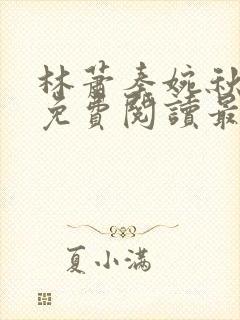 林萧秦婉秋
免費閱讀最
夏小满